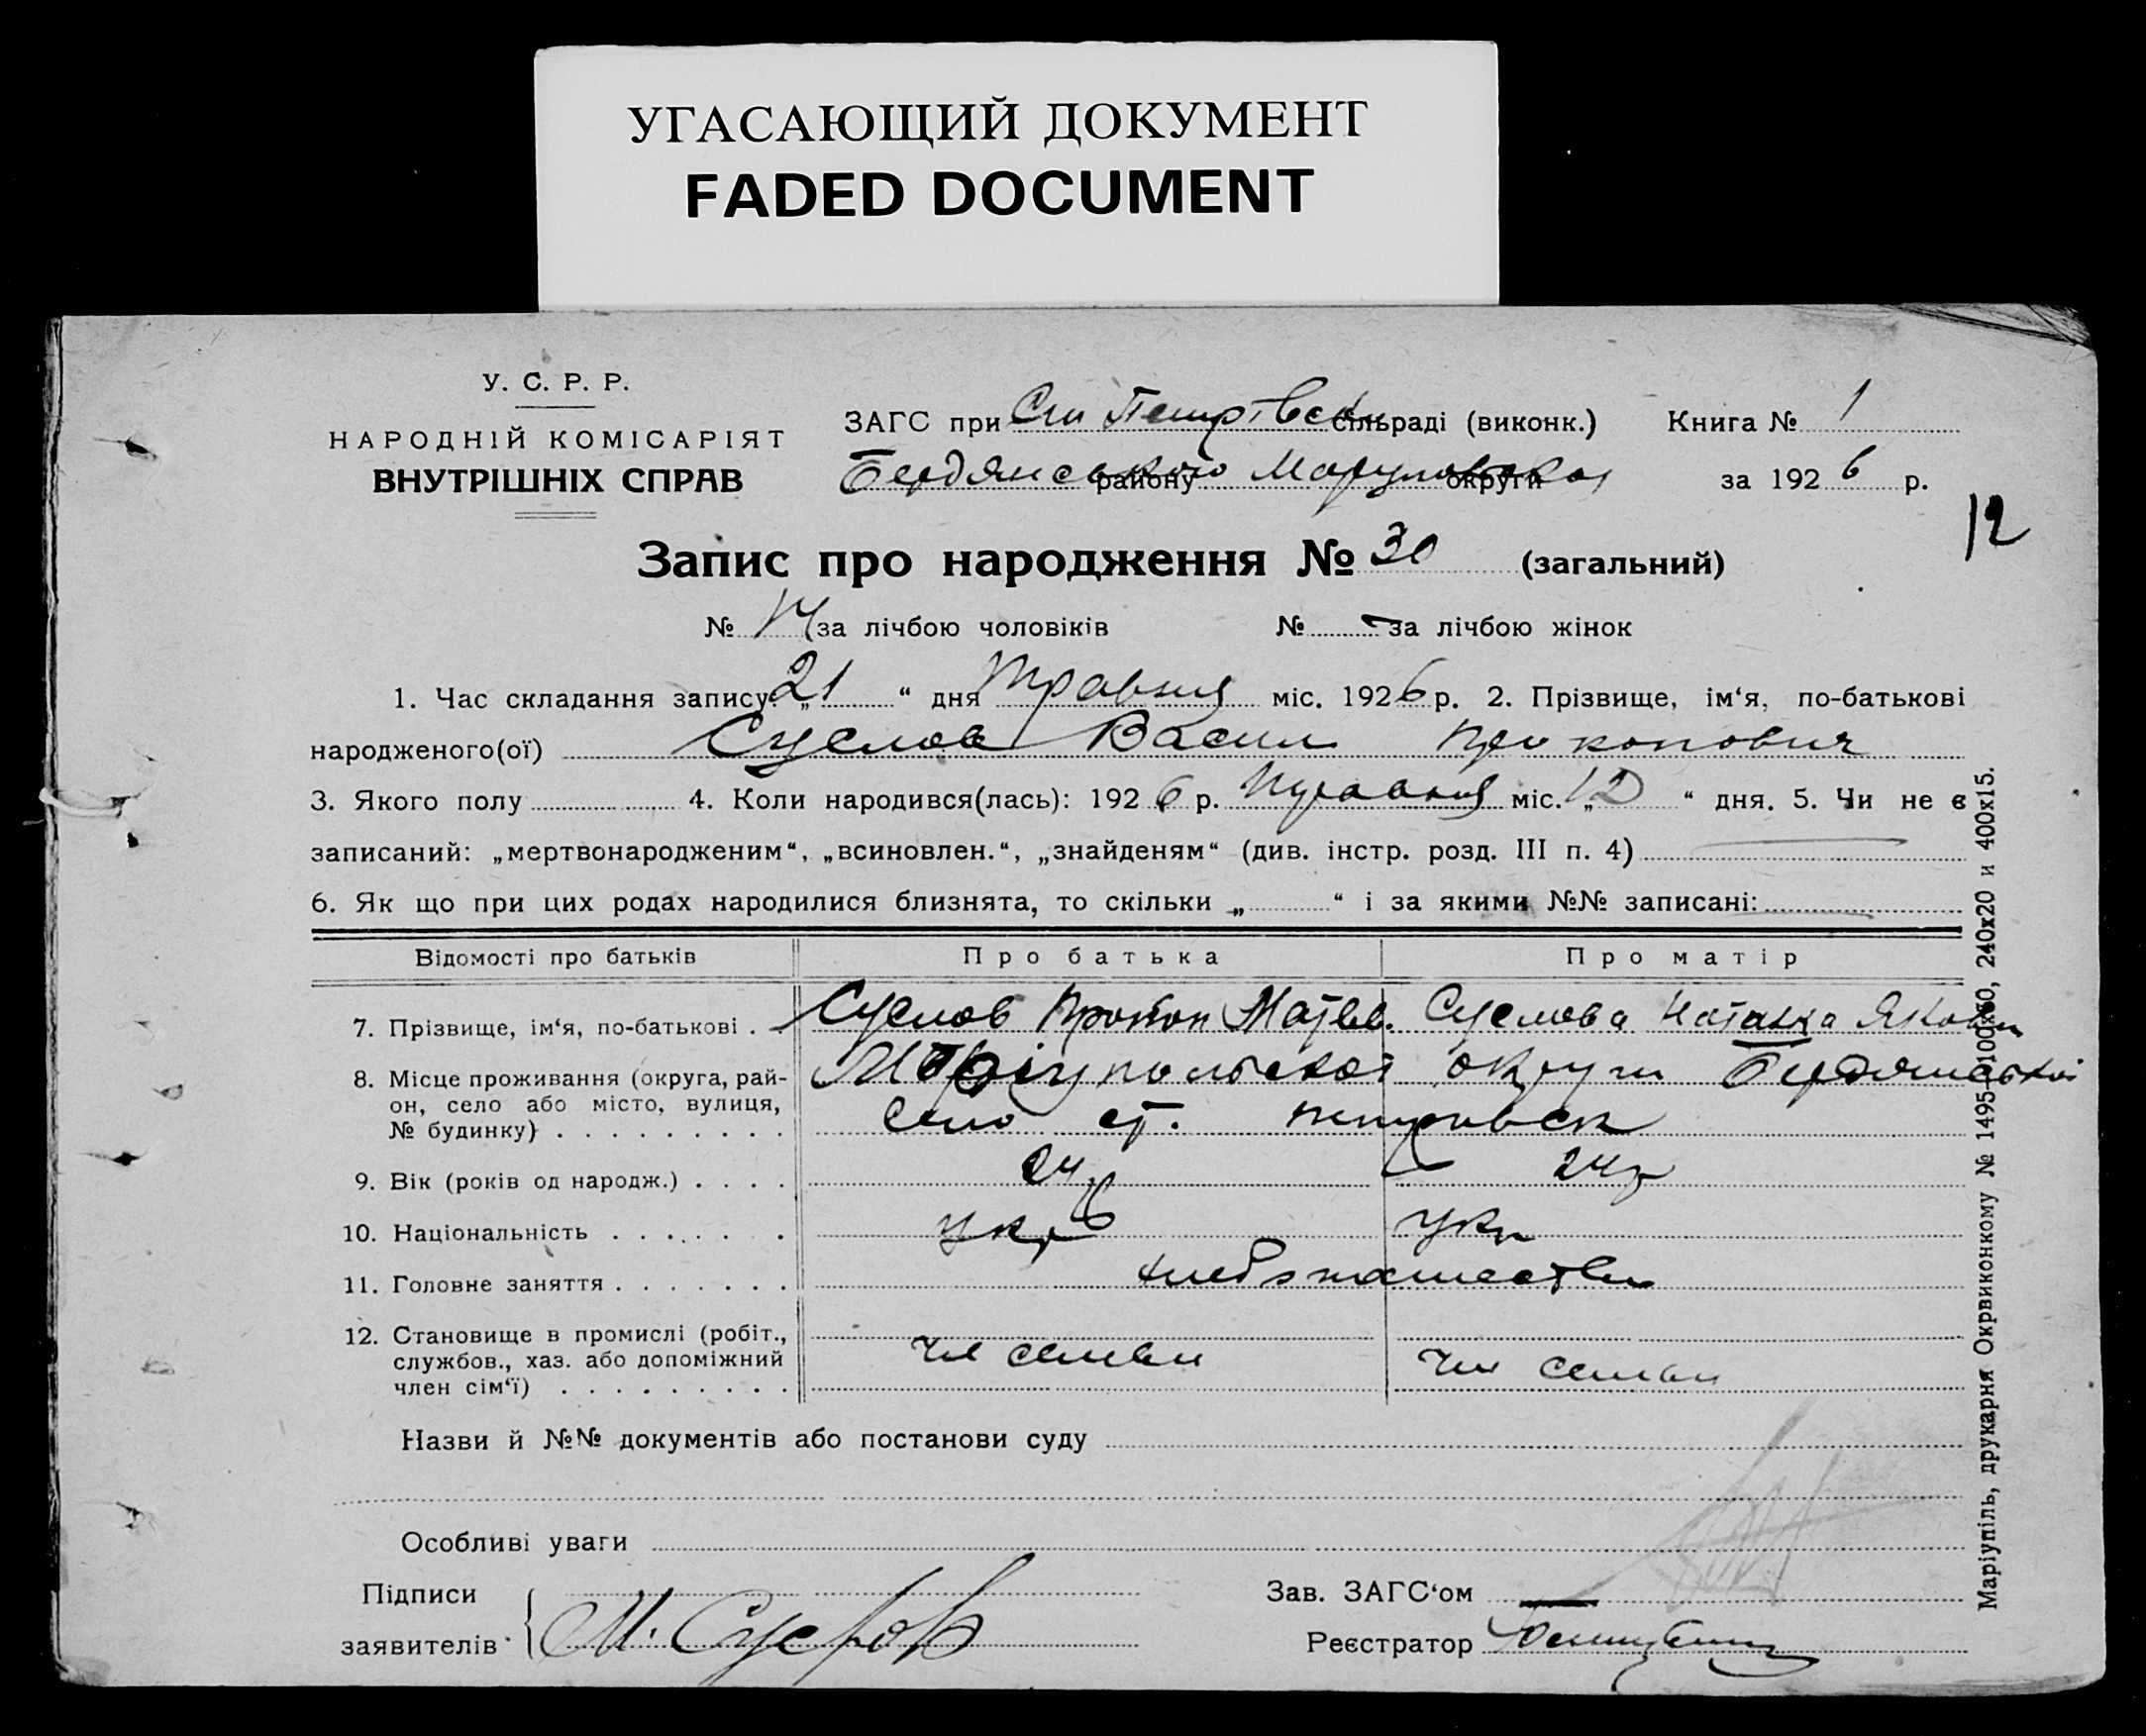 УГАСАЮЩИЙ ДОКУМЕНТ
FADED DOCUMENT
У. С. Р. Р.
НАРОДНІЙ КОМІСАРІЯТ
ВНУТРІШНІХ СПРАВ
ЗАГС при Ст Петровськ сільраді (виконк.) Книга № 1
Бердянського району округи за 1926 р.
12
Запис про народження № 30 (загальний)
№ 14 за лічбою чоловіків № - за лічбою жінок
1. Час складання запису: „21“ дня Травня міс. 1926 р. 2. Прізвище, ім‘я, по-батькові
народженого(ої) Суслов Васил Прокопович
3. Якого полу 4. Коли народився(лась): 1926 р. Травня міс. „12“ дня. 5. Чи не є
записаний: „мертвонародженим“, „всиновлен.“, „знайденям“ (див. інстр. розд. III п. 4)
6. Як що при цих родах народилися близнята, то скільки „ “ і за якими №№ записані:
Відомості про батьків Про батька Про матір
7. Прізвище, ім‘я, по-батькові . . Суслов Прокоп Матвев. Суслова Наталка Яковл
8. Місце проживання (округа, рай- Маріупольской округи Бердянської
он, село або місто, вулиця, село ст. петровск
№ будинку) . . . . . . . . .
9. Вік (років од народж.) . . . . 24 р 24 р
10. Національність . . . . . . . укр укр
11. Головне заняття . . . . . . . хлебопашество
12. Становище в промислі (робіт.,
службов., хаз. або допоміжний чл семьи чл семьи
член сім‘ї) . . . . . . . . .
Назви й №№ документів або постанови суду
Особливі уваги
Підписи Зав. ЗАГС‘ом
заявителів М. Суслов Реєстратор
Маріупіль, друкарня Окрвиконкому № 1495-100х60, 240х20 и 400х15.